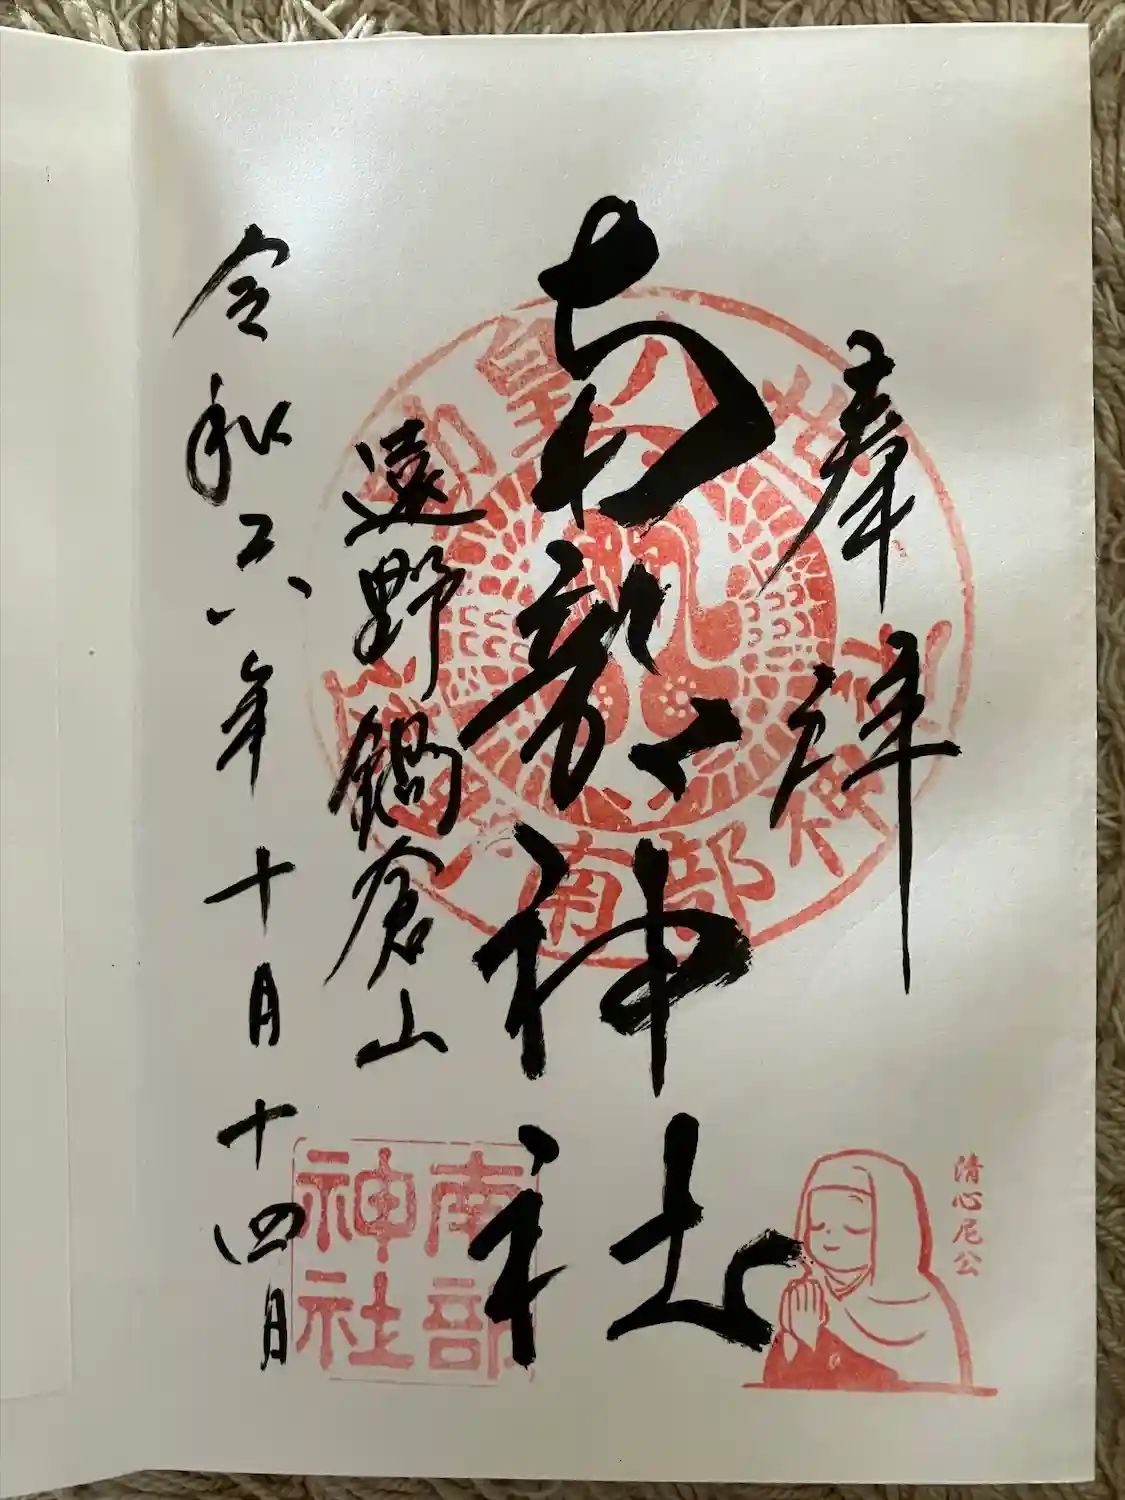 奉拝
南部神社
遠野鍋倉山
令和六年十月十四日
南部
南部神社
清心尼公